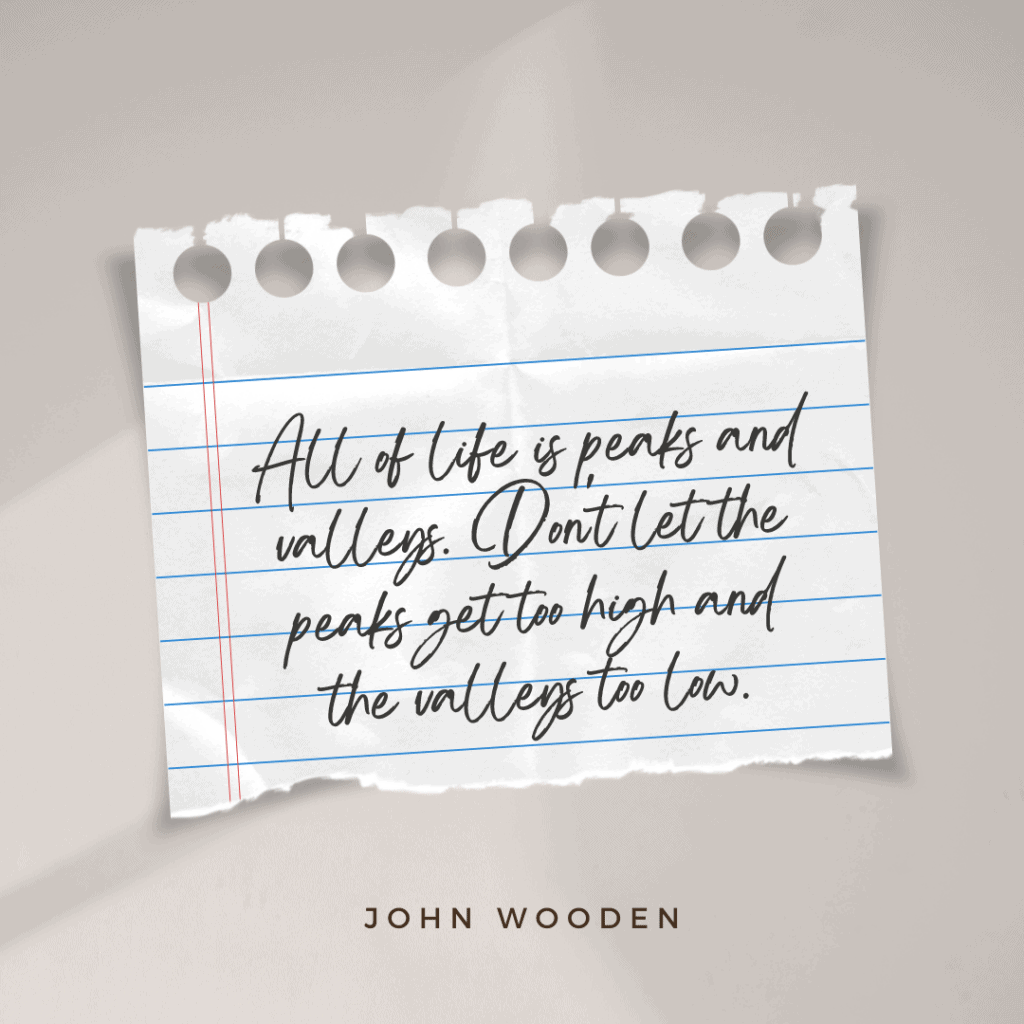 All of life is peaks and
valleys. Don't let the
peaks get too high and
the valleys too low.
JOHN WOODEN